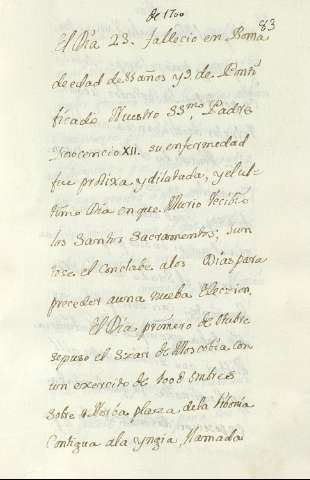 de 1700
83
El Dia 23. fallecio en Roma
de edad de años y 9 de Ponti
ficado Nuestro SSmo. Padre
Ynocencio XII. su enfermedad
fue prolixa, y dilatada, y el ul-
timo Dia en que Murio recibio
los Santos Sacramentos; Jun
tose el Conclabe a los Dias para
preceder a una nueba Eleczion.
El Dia primero de Otubre
se puso el Szar de Moscobia con
un exercito de 100 ombres
sobre Nerba, plaza de la Libonia
Contigua a la yngia, llamada